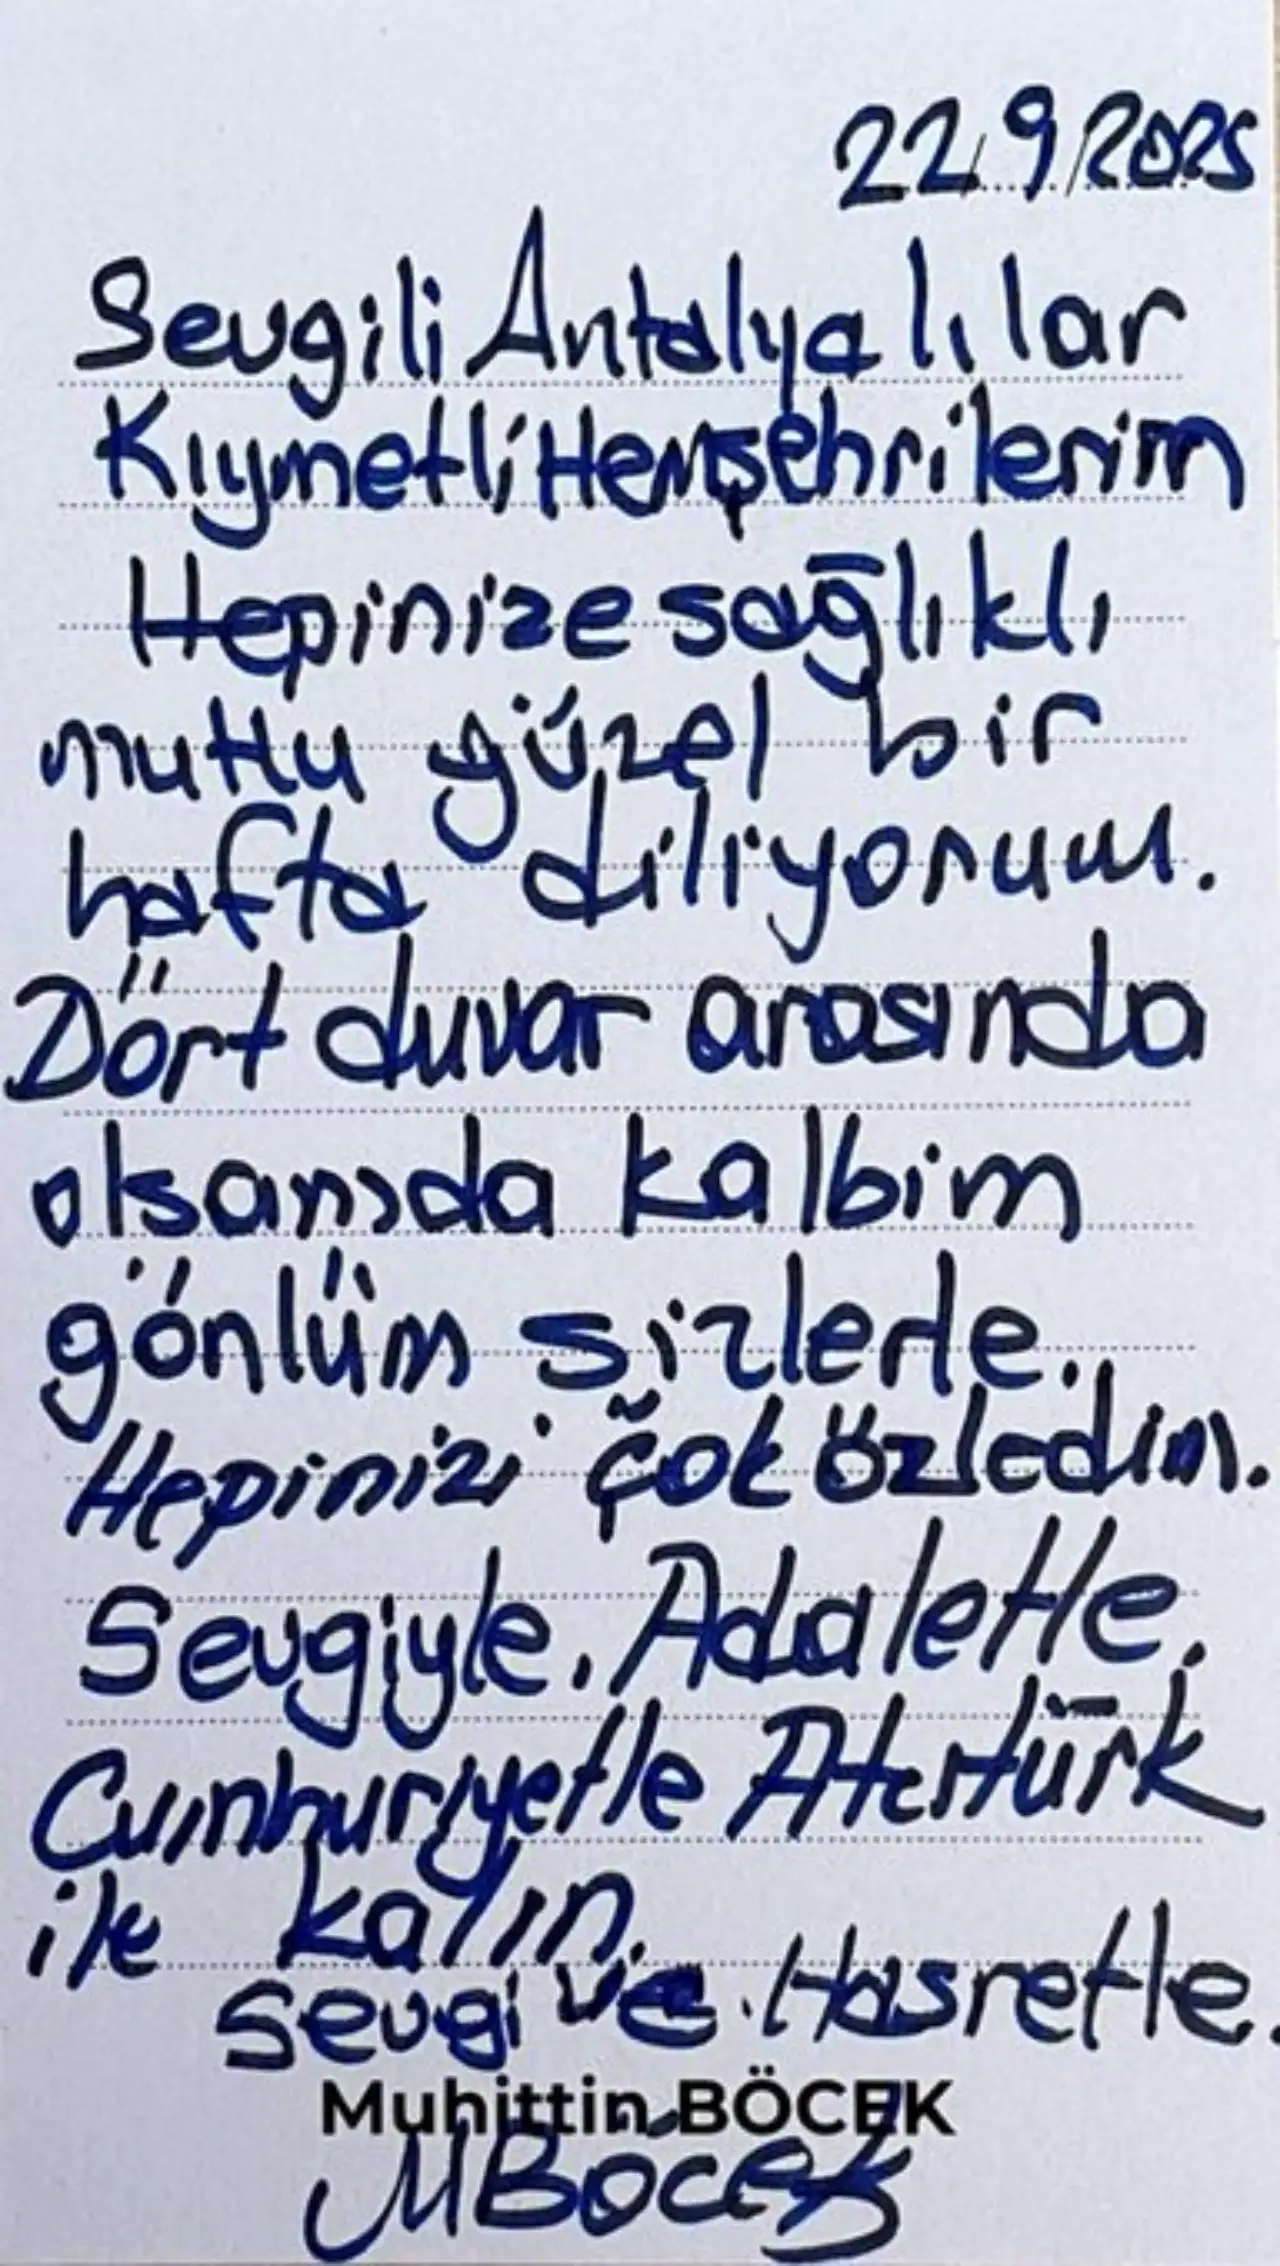 22.9/2025
Sevgili Antalyalılar
Kıymetli Hemşehrilerim
Hepinize sağlıklı
mutlu güzel bir
hafta diliyorum.
Dört duvar arasında
olsamda kalbim
gönlüm sizlerle.
Hepinizi çok özledim.
Sevgiyle, Adaletle,
Cumhuriyetle Atatürk
ile kalın.
Sevgi ve Hasretle.
Muhittin BÖCEK
MBöcek